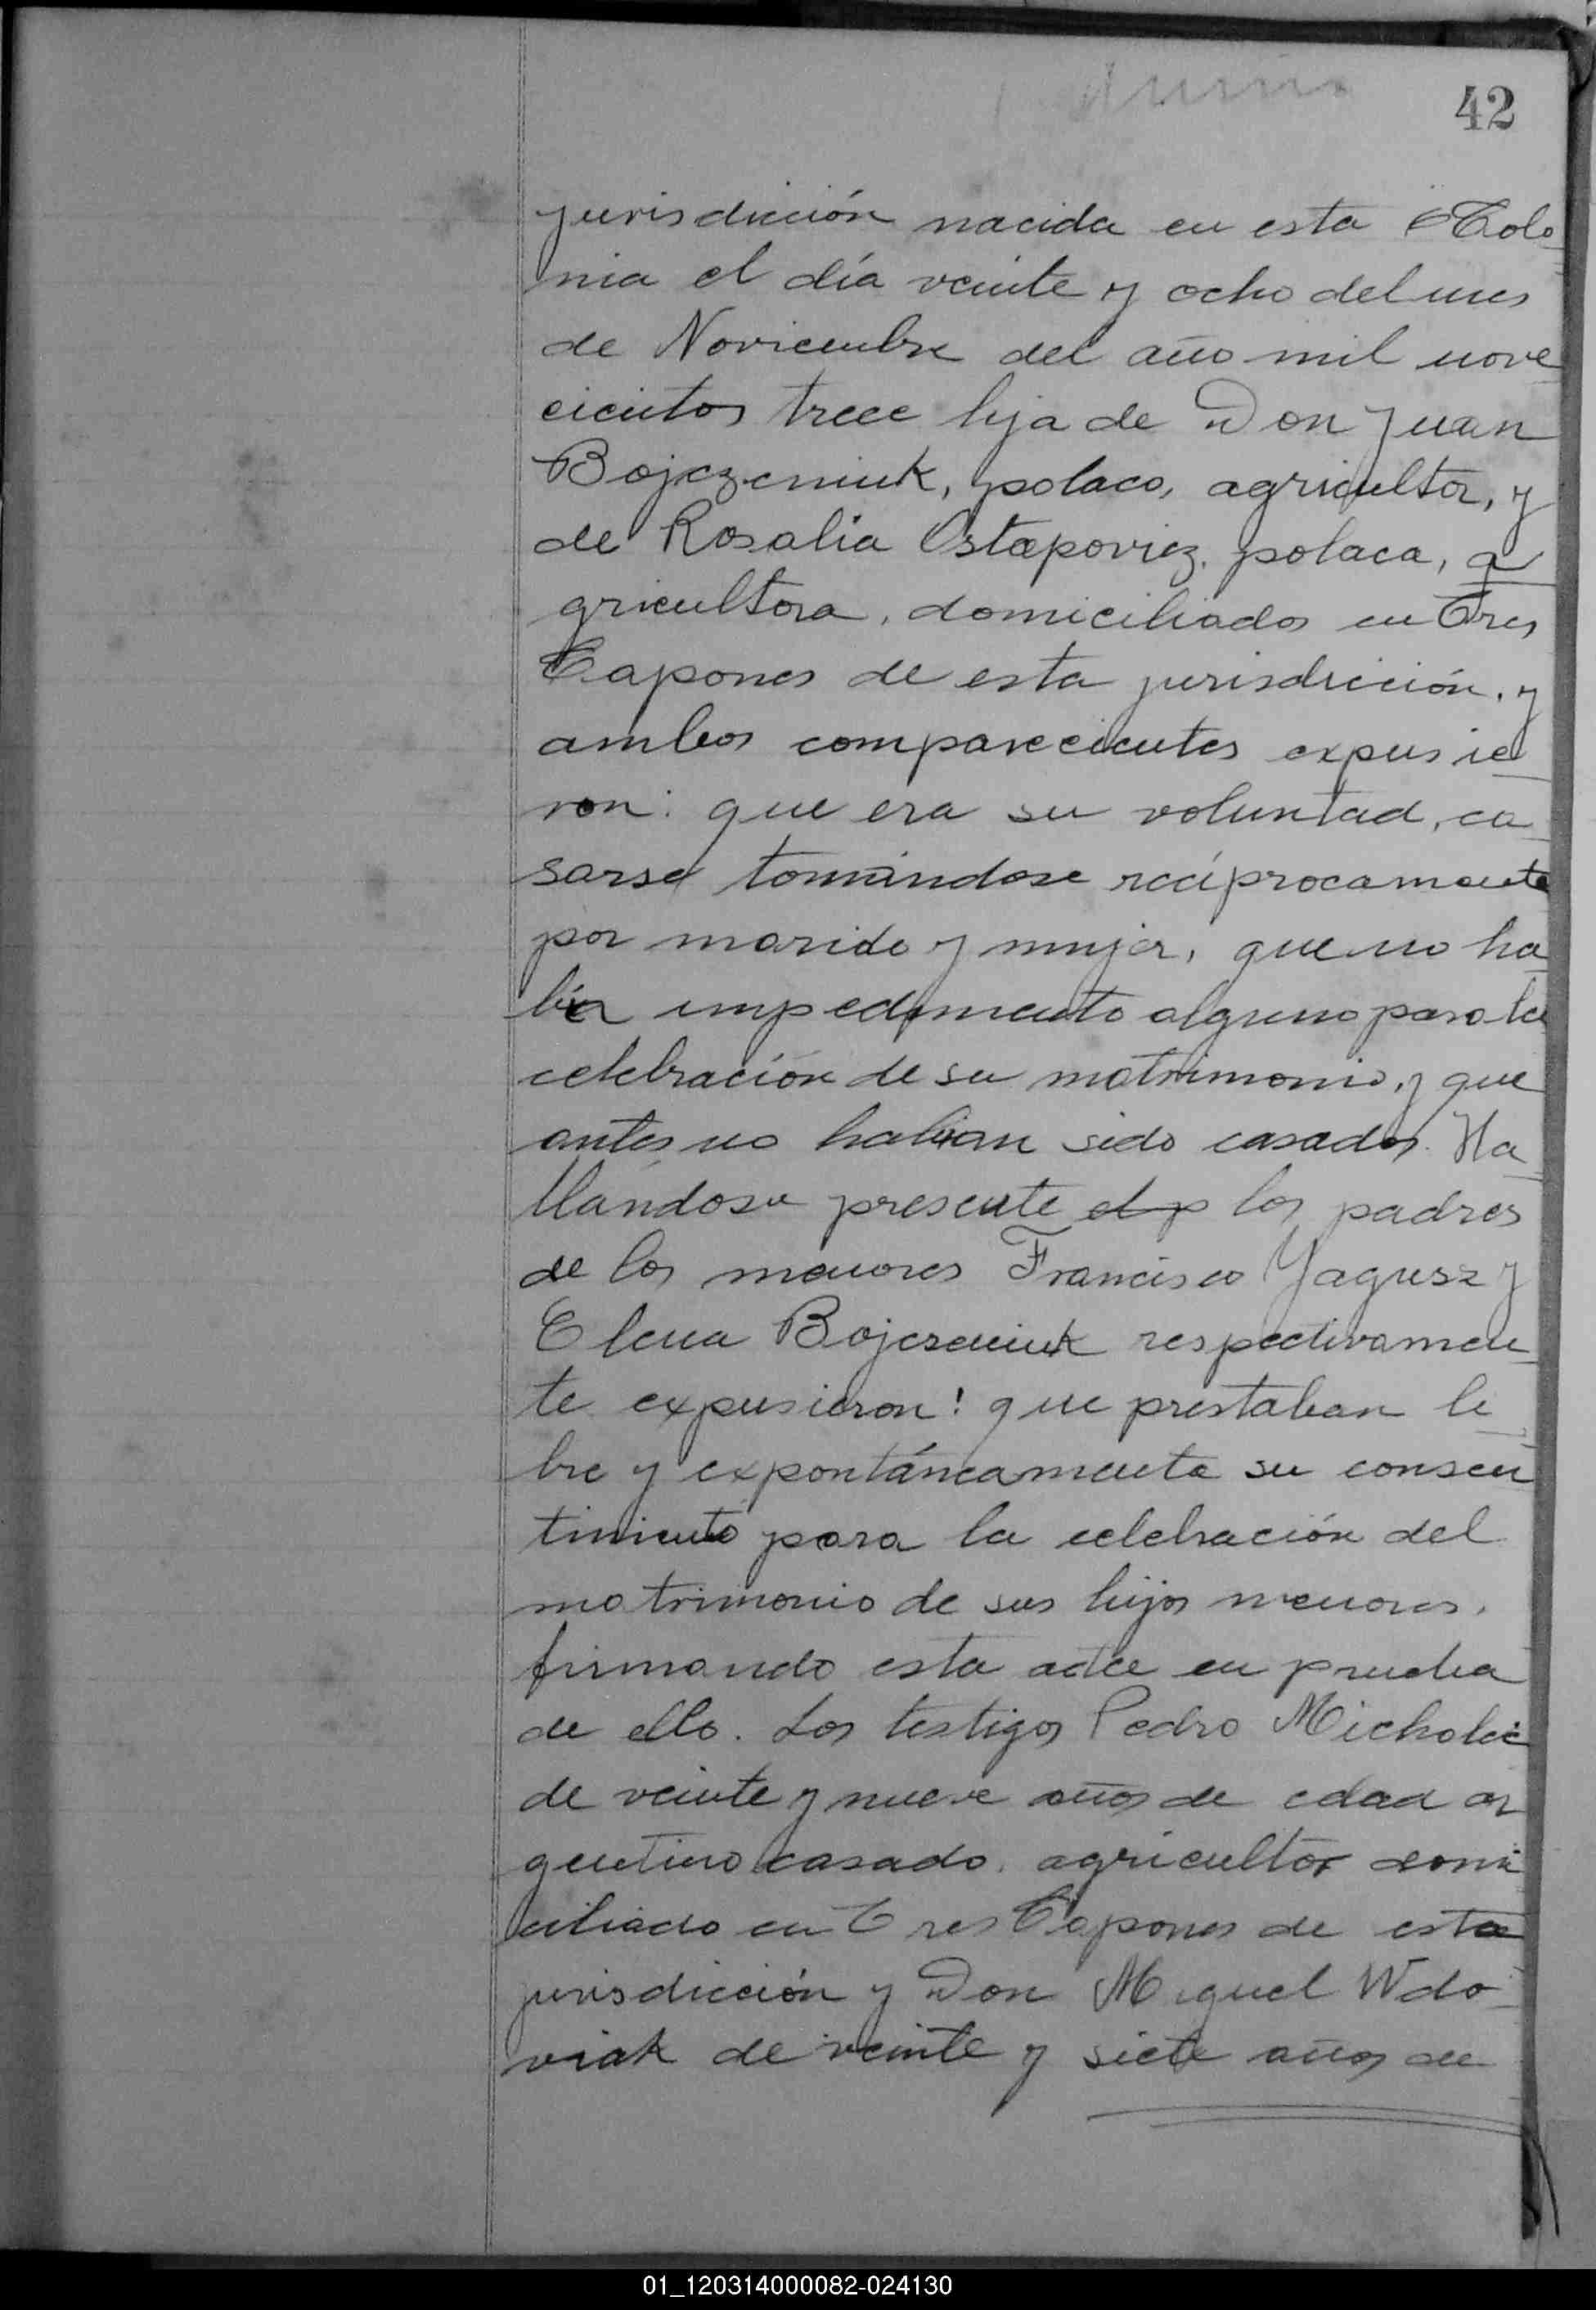 42
jurisdicción nacida en esta Colo
nia el día veinte y ocho del mes
de Noviembre del año mil nove
cientos trece hija de Don Juan
Bojczeniuk, polaco, agricultor, y
de Rosalia Ostapovicz, polaca, a
gricultora, domiciliados en Tres
Capones de esta jurisdicción, y
ambos comparecientes expusie
ron: que era su voluntad, ca
sarse tomándose recíprocamente
por marido y mujer, que no ha
bía impedimento alguno para la
celebración de su matrimonio, y que
antes no habian sido casados. Ha
llándose presente el p los padres
de los menores Francisco Yagusz y
Elena Bojczeniuk respectivamen
te expusieron: que prestaban li
bre y expontáneamente su consen
timiento para la celebración del
matrimonio de sus hijos menores,
firmando esta acta en prueba
de ello. Los testigos Pedro Micholic
de veinte y nueve años de edad ar
gentino casado, agricultor domi
ciliado en Tres Capones de esta
jurisdicción y Don Miguel Wdo
viak de veinte y siete años de
01_120314000082-024130